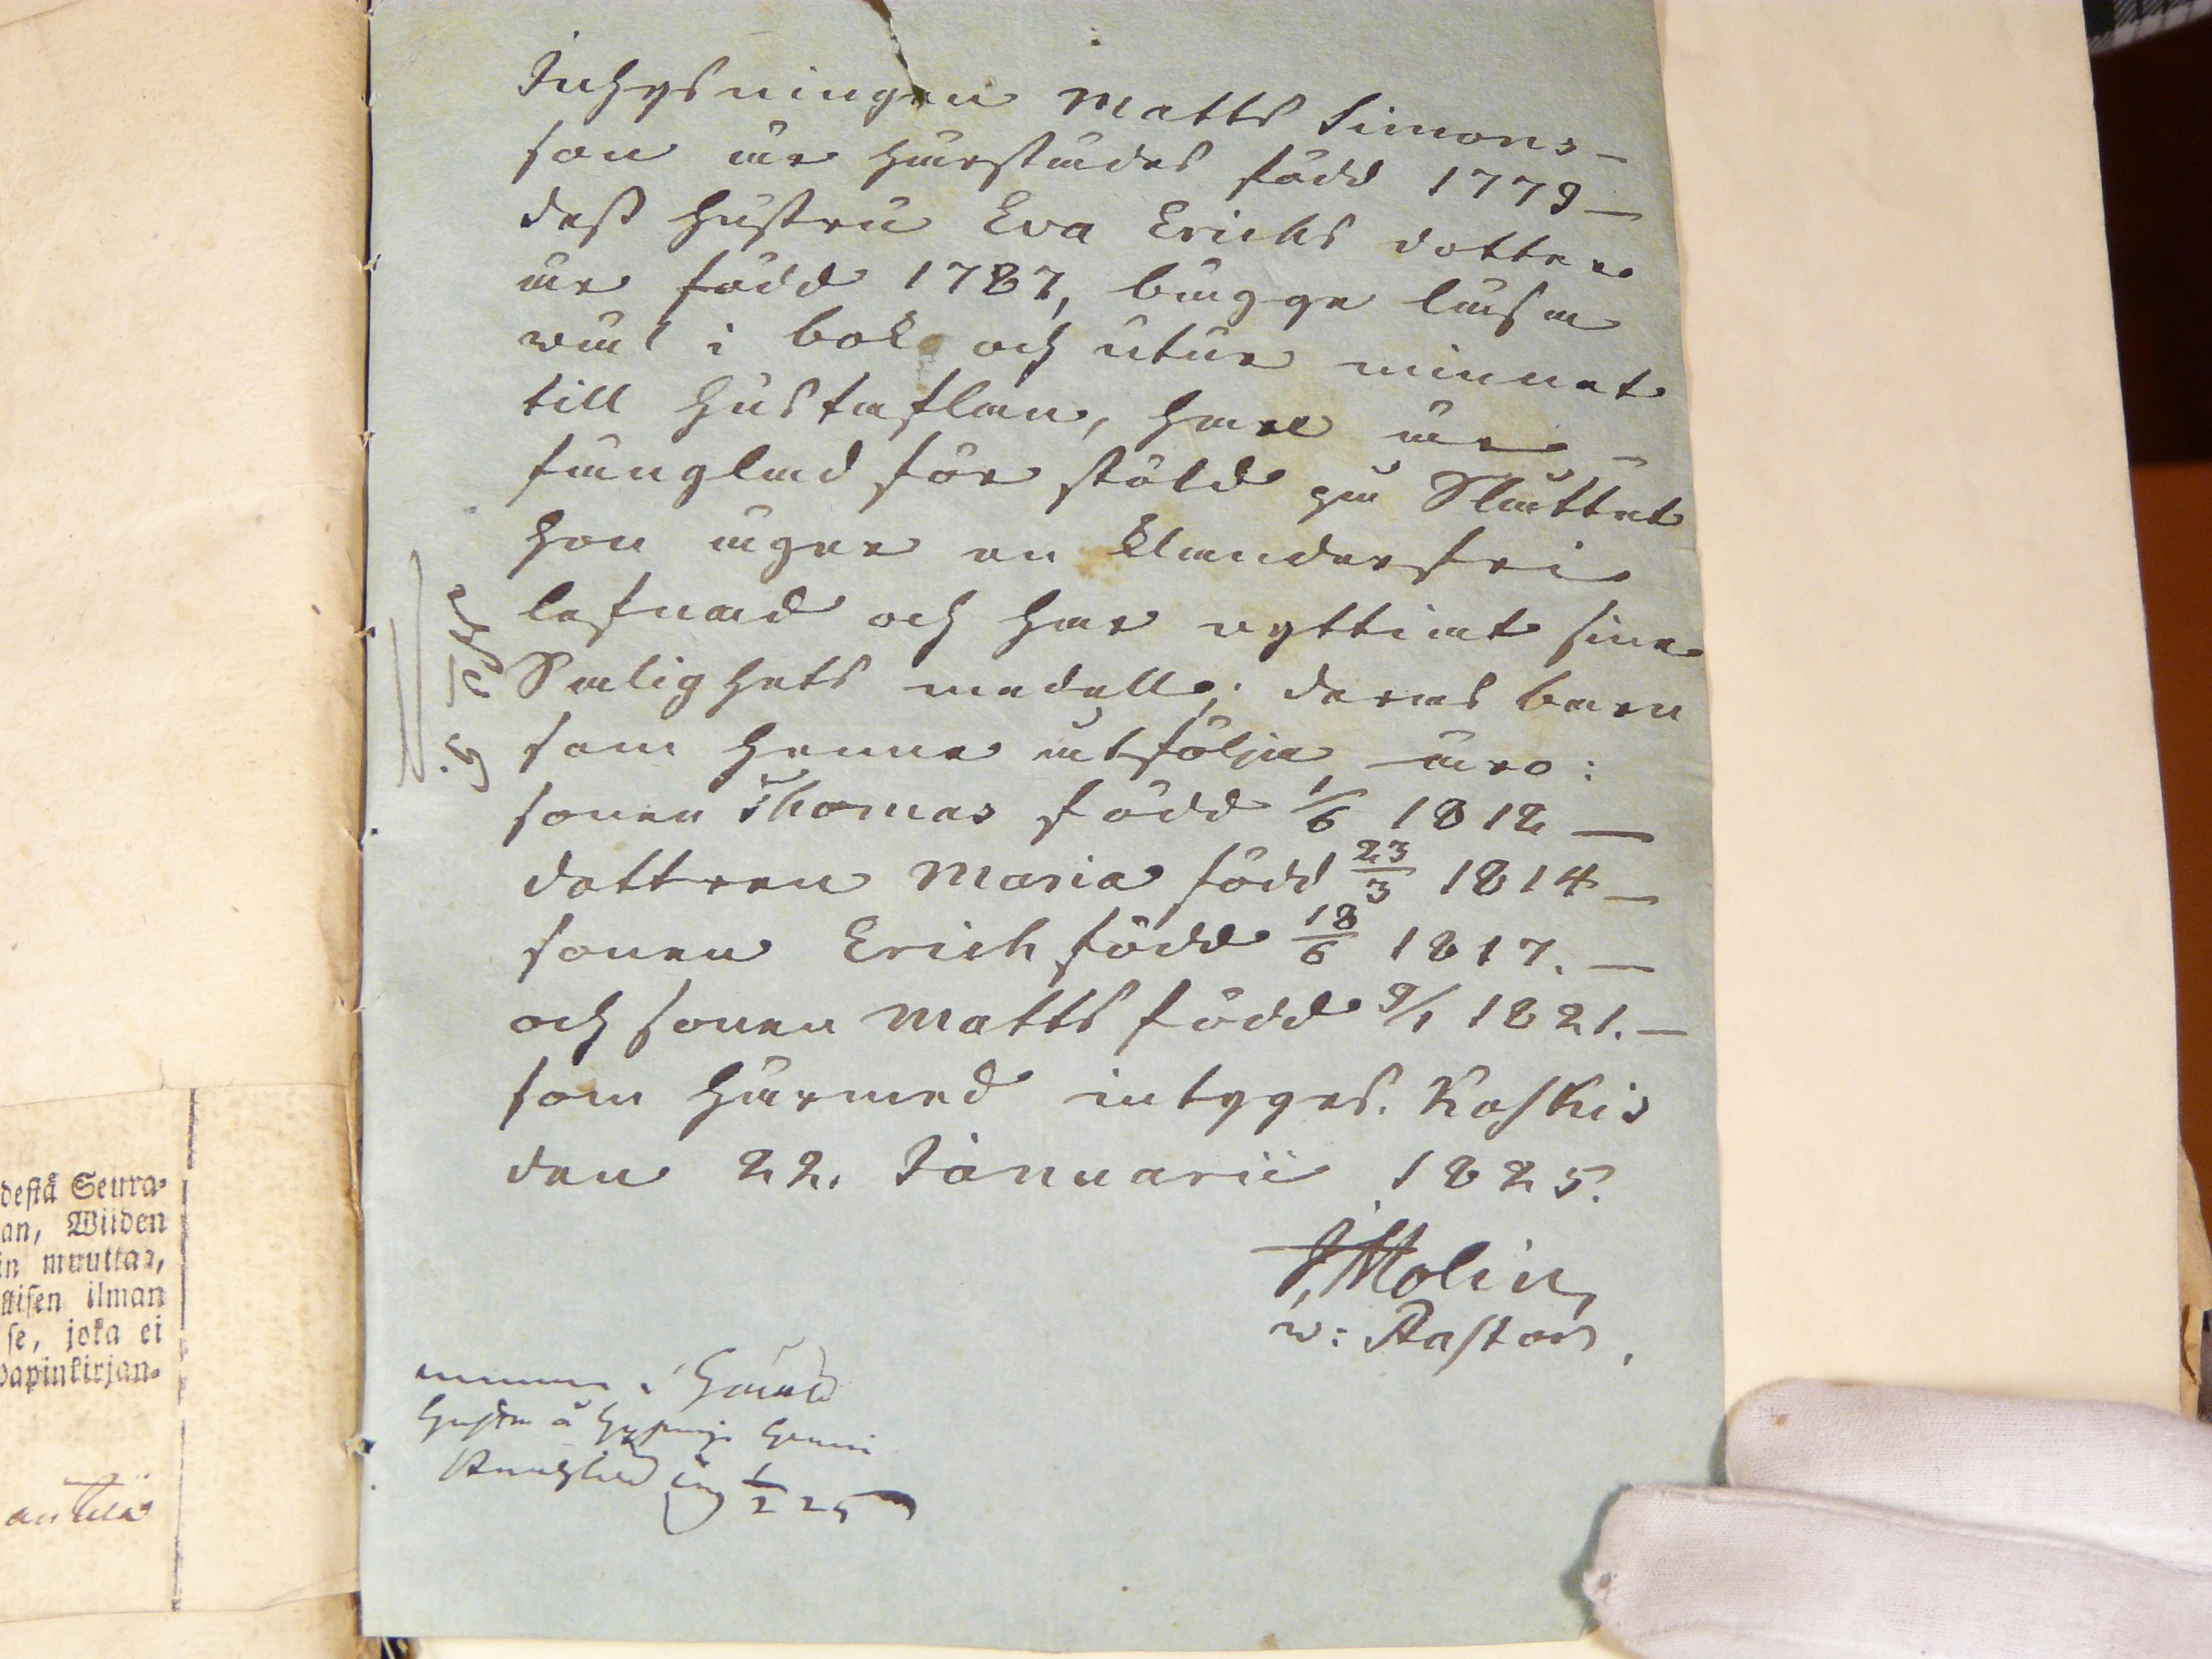 Inhysningen Matts Simons-
son är härstädes född 1779 —
dess hustru Eva Erichs dotter
är född 1787, bägge läsa
wäl i bok och utur minnet
till Hustaflan, han är
fänglad för stöld på Slåttet
hon äger en klanderfri
lefnad och har nyttjat sine
Salighets medell; deras barn
som henne åtfölja äro:
sonen Thomas född 1/6 1812 —
dottren Maria född 23/3 1814 —
sonen Erich född 18/6 1817. —
och sonen Matts född 9/1 1821. —
som härmed intyges. Koskis
den 22. Januarii 1825.
J. Molin,
v: Pastor.
1/2 25
destä Seura-
an, Wiiden
in muuttaa,
ilman
se, joka ei
papinkirjan-